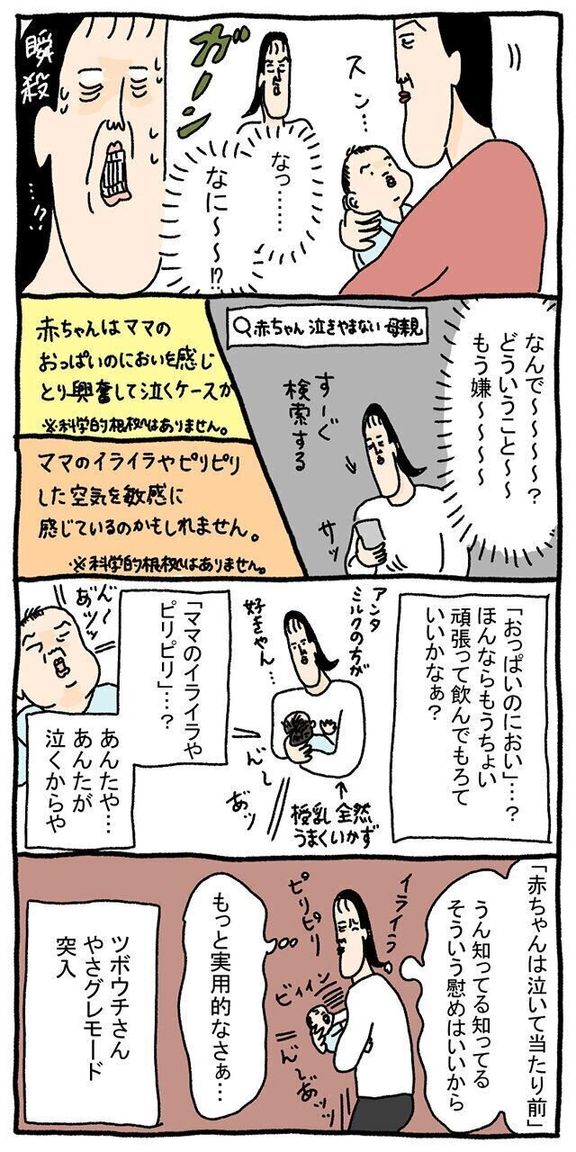 スン…
ガーン
なっ……
なに〜〜!?
瞬殺
…!?
なんで〜〜〜〜？
どういうこと〜〜
もう嫌〜〜〜〜
赤ちゃん 泣きやまない 母親
すーぐ
検索する
サッ
赤ちゃんはママの
おっぱいのにおいを感じ
とり興奮して泣くケースが
※科学的根拠はありません。
ママのイライラやピリピリ
した空気を敏感に
感じているのかもしれません。
※科学的根拠はありません。
「おっぱいのにおい」…？
ほんならもうちょい
頑張って飲んでもろて
いいかなぁ？
アンタ
ミルクの方が
好きやん…
授乳 全然
うまくいかず
ん゛〜
あ゛ッ
「ママのイライラや
ピリピリ」…？
ん゛〜
あ゛ッッ
あんたや…
あんたが
泣くからや
「赤ちゃんは泣いて当たり前」
うん知ってる知ってる
そういう慰めはいいから
イライラ
ピリピリ
ピリピリ
もっと実用的なさぁ…
ビィィン
ん゛〜あ゛ッッ
ツボウチさん
やさグレモード
突入